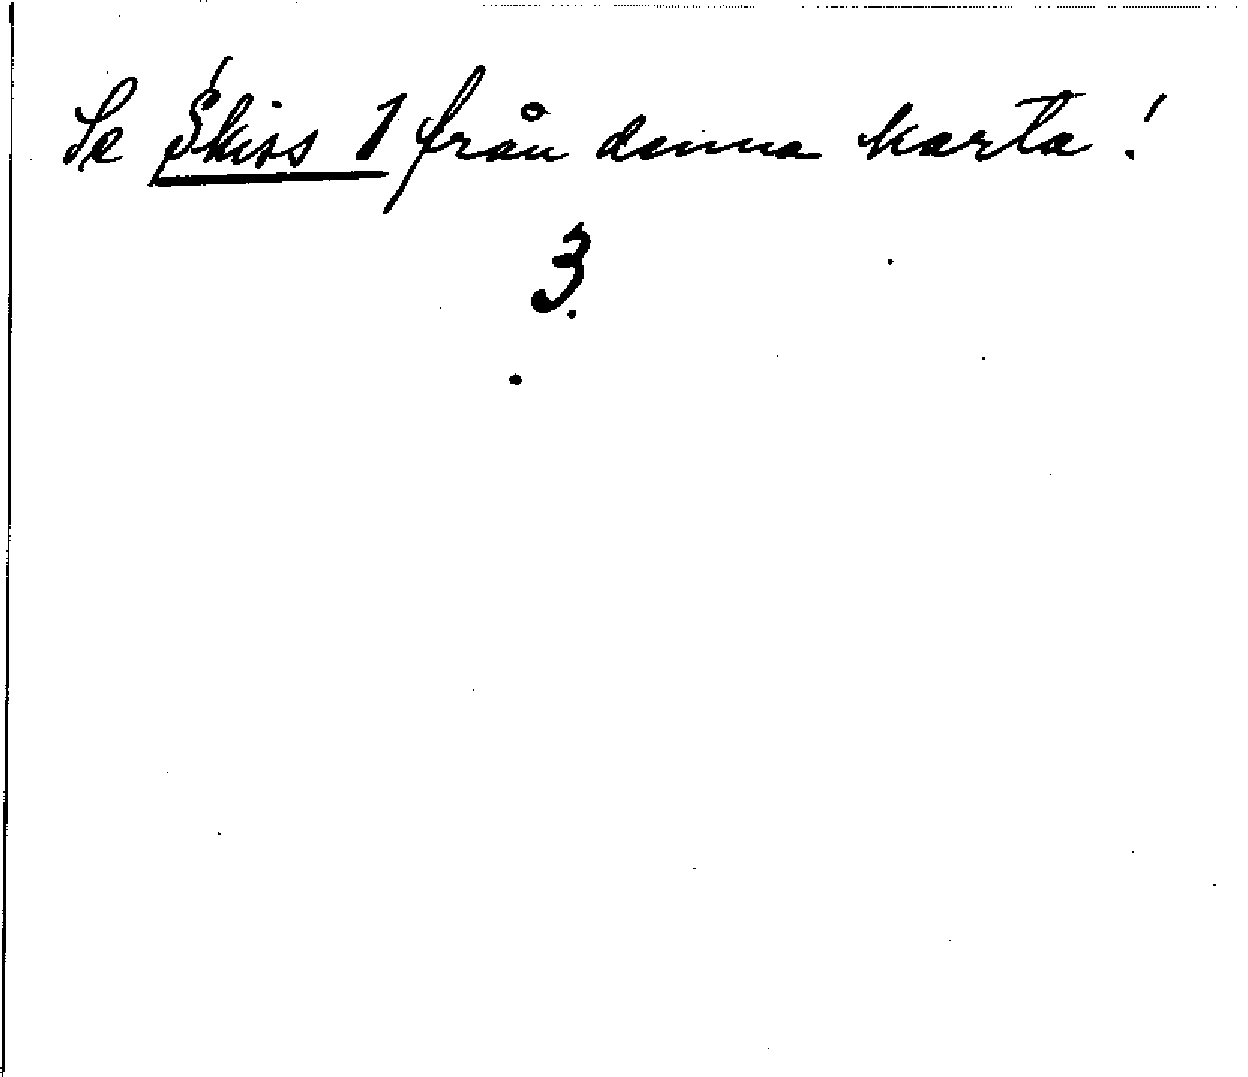 Se Skiss 1 från denna karta!
3.